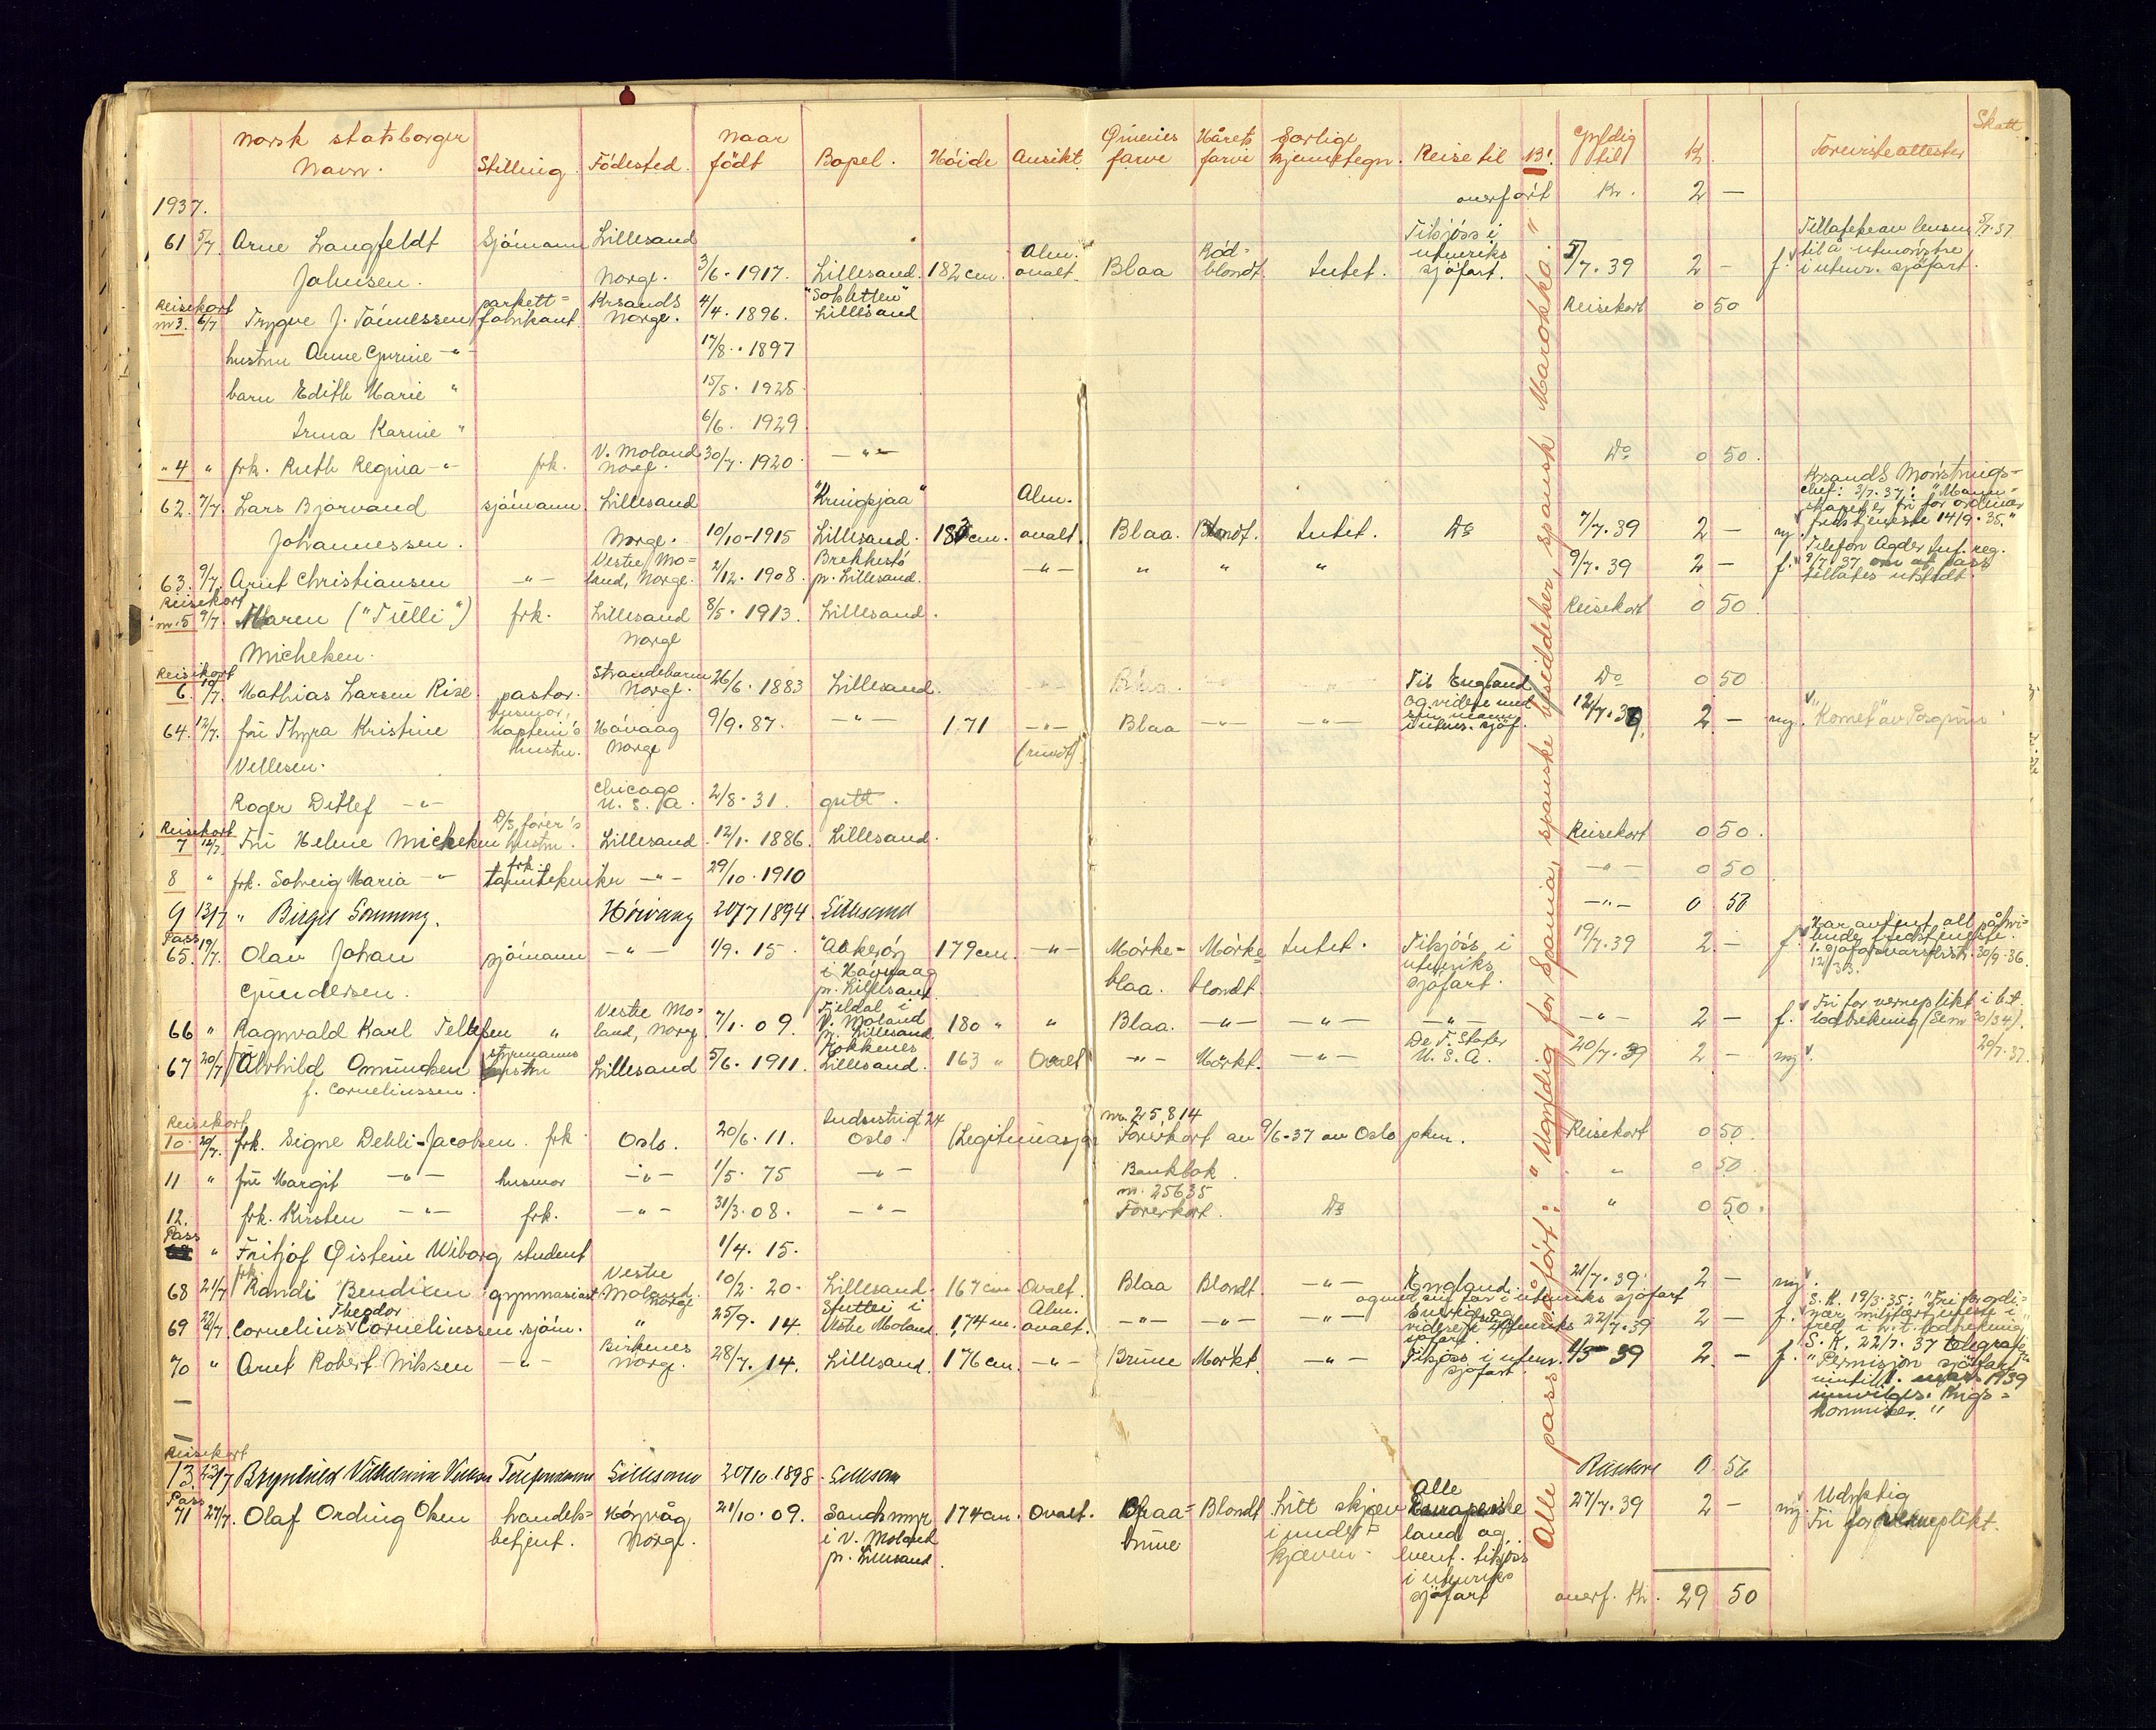 norsk statsborger Navn. Stilling. Födested. Naar født Bopel. Höide Ansikt. Öinenes farve Hårets farve Særlige kjennetegn. Reise til B! Gyldig til Kr. Foreviste attester Skatt
1937. overført Kr. 2 —
61 5/7 Arne Langfeldt Sjömann Lillesand Alm. Röd= Tilsjöss i 5/7.37
Johnsen. Norge. 3/6. 1917. Lillesand. 182 cm. ovalt. Blaa blondt. Intet. utenriks sjöfart. 5/7.39 2 — f. til å utmönstre i utenr. sjöfart.
Reisekort parkett= Krsands "Solsletten"
nr 3. 6/7 Trygve J. Tönnessen fabrikant. Norge. 4/4. 1896. Lillesand Reisekort 0 50
hustru Anne Gurine —"— 17/8. 1897
barn Edith Marie " 15/5. 1925
Irma Karine " 6/6. 1929
" 4 " frk. Ruth Regina —"— frk. V. Moland Norge. 30/7. 1920. —"— Do 0 50.
62. 7/7 Lars Bjorvand sjömann. Lillesand "Kringsjaa" Alm. Krsands Mönstrings=
chef: 3/7.37: "Mann=
skapet er fri for ordinær
Johannessen. Norge. 10/10-1915 Lillesand. 183 cm. ovalt. Blaa. Blondt. Intet. Do 7/7.39 2 — ny. fredstjeneste 14/9.35."
63. 9/7 Arnt Christiansen —"— Vestre Mo= land, Norge. 2/12. 1908. Brekkestö pr. Lillesand. —"— " " " 9/7.39 2 — f. Telefon Agder Inf. reg. 9/7.37 om at pass tillates utstedt.
Reisekort
nr. 5 9/7. Maren ("Tulli") frk. Lillesand Norge 8/5. 1913. Lillesand. Reisekort 0 50
Micheken.
Reisekort
6. 10/7. Mathias Larsen Rise. pastor. Strandebarm Norge. 26/6. 1883 Lillesand. Til England Do 0 50
64. 12/7. fru Thyra Kristine husmor, kaptein's hustru. Hövaag Norge 9/9.87. —"— 1.71 —"— (rundt) Blaa —"— —"— og videre med sin mann i utenr. sjöf. 12/7.39. 2 — ny. "Komet" av Porsgrunn
Vellesen.
Roger Ditlef —"— Chicago U.S.A. 2/8.31. gutt.
Reisekort
7 12/7. Fru Helene Micheken D/S förer's hustru. Lillesand. 12/1. 1886. Lillesand. Reisekort 0 50.
8 " frk. Solveig Maria —"— frk. tanntekniker —"— 29/10.1910 —"— 0 50
9 13/7 " Birger Hövaag 20/7 1894. Lillesand —"— 0 50
Pass
65. 19/7. Olav Johan sjömann —"— 1/9. 15. "Aakerön i Hövaag pr. Lillesand. 179 cm. —"— Mörke= blaa. Mörke blondt. Intet. Tilsjöss i utenriks sjöfart. 19/7.39 2. — f.
Gundersen.
66 " Ragnvald Karl Tellefsen " Vestre Mo= land, Norge 7/1. 09. Fjeldal i V. Moland pr. Lillesand. 180 " " Blaa. —"— —"— —"— —"— 2 — f. Fri for verneplikt i h.t. lodtrekning
67 20/7 Alvhild Omundsen styrmanns hustru Lillesand 5/6. 1911. Kokkenes Lillesand. 163 " Ovalt —"— Mörkt. —"— De F. Stater U.S.A. 20/7.39 2 — ny. 20/7.37.
f. Corneliussen.
Reisekort
10. 20/7. frk. Signe Dehli-Jacobsen. frk Oslo. 20/6. 11. Industrigt 24 Oslo. (Legitimasjon nr. 25814 Förerkort av 9/6-37 av Oslo pkm. Reisekort 0 50.
11 " fru Margit —"— husmor —"— 1/5. 75 —"— Bankbok " 0 50
12. frk. Kirsten —"— frk. —"— 31/3.08. —"— nr. 25635 Förerkort. Do " 0 50.
Pass
" Fritjof Øistein Wiborg student 1/4. 15.
68 21/7 frk. Randi Bendixen gymnasiast Vestre Moland. Norge 10/2. 20. Lillesand. 167 cm Ovalt. Blaa Blondt. —"— England. 21/7.39. 2 — ny.
69 22/7. Cornelius Theodor Corneliussen. sjöm. " 25/9. 14. Vestre Moland. 1,74 m. Alm. ovalt. —"— —"— —"— Sverige og videre i utenriks sjöfart. 22/7.39 2 — f. S. K. 19/3.35: "Fri for ordi=
nær militærtjeneste i
fred i h.t. lodtrekning"
70 " Arnt Robert Nilssen —"— Birkenes Norge. 28/7. 14. Lillesand. 176 cm. —"— Brune Mörkt. —"— Tilsjöss i utenr. sjöfart. 1/3 39 2 — f. S. K. 22/7. 37 telegraf:
"Permisjon sjöfart
inntil 1. mars 1939
innvilges. Krigs=
kommisær."
Reisekort
13. 23/7 Brynhild Vilhelmine Lillesand 20/10.1898. Lillesand Reisekort 0. 50
Pass
71 27/7. Olaf Ording Olsen handels= betjent. Hövåg Norge. 21/10.09. Sandsmyr i V. Moland pr. Lillesand. 174 cm. Ovalt. Blaa= brune Blondt Litt skjev i under= kjæven. Alle Europeiske land og event. tilsjöss i utenriks sjöfart 27/7.39 2 — ny. Udyktig
Fri for verneplikt.
overf. Kr. 29 50
Alle pass påfört: "Ugyldig for Spania, spanske besiddelser, spansk Marokko."